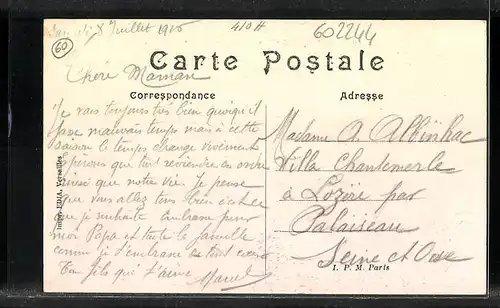 8 Juillet 1915
410A
602244
60
Carte Postale
Chère Maman
Correspondance
Adresse
Je vais toujours très bien quoiqu'il
fasse mauvais temps mais à cette
saison le temps change vivement
espérons que tout reviendra en ordre
ainsi que notre vie. Je pense
que vous allez tous bien c'est ce
que je souhaite embrasse pour
moi Papa et toute la famille
comme je t'embrasse de tout cœur
Ton fils qui t'aime Marcel
Madame A. Albinhac
Villa Chantemerle
à Lozère par
Palaiseau
Seine et Oise
I. P. M. Paris
Imp. E.D.I.A. Versailles